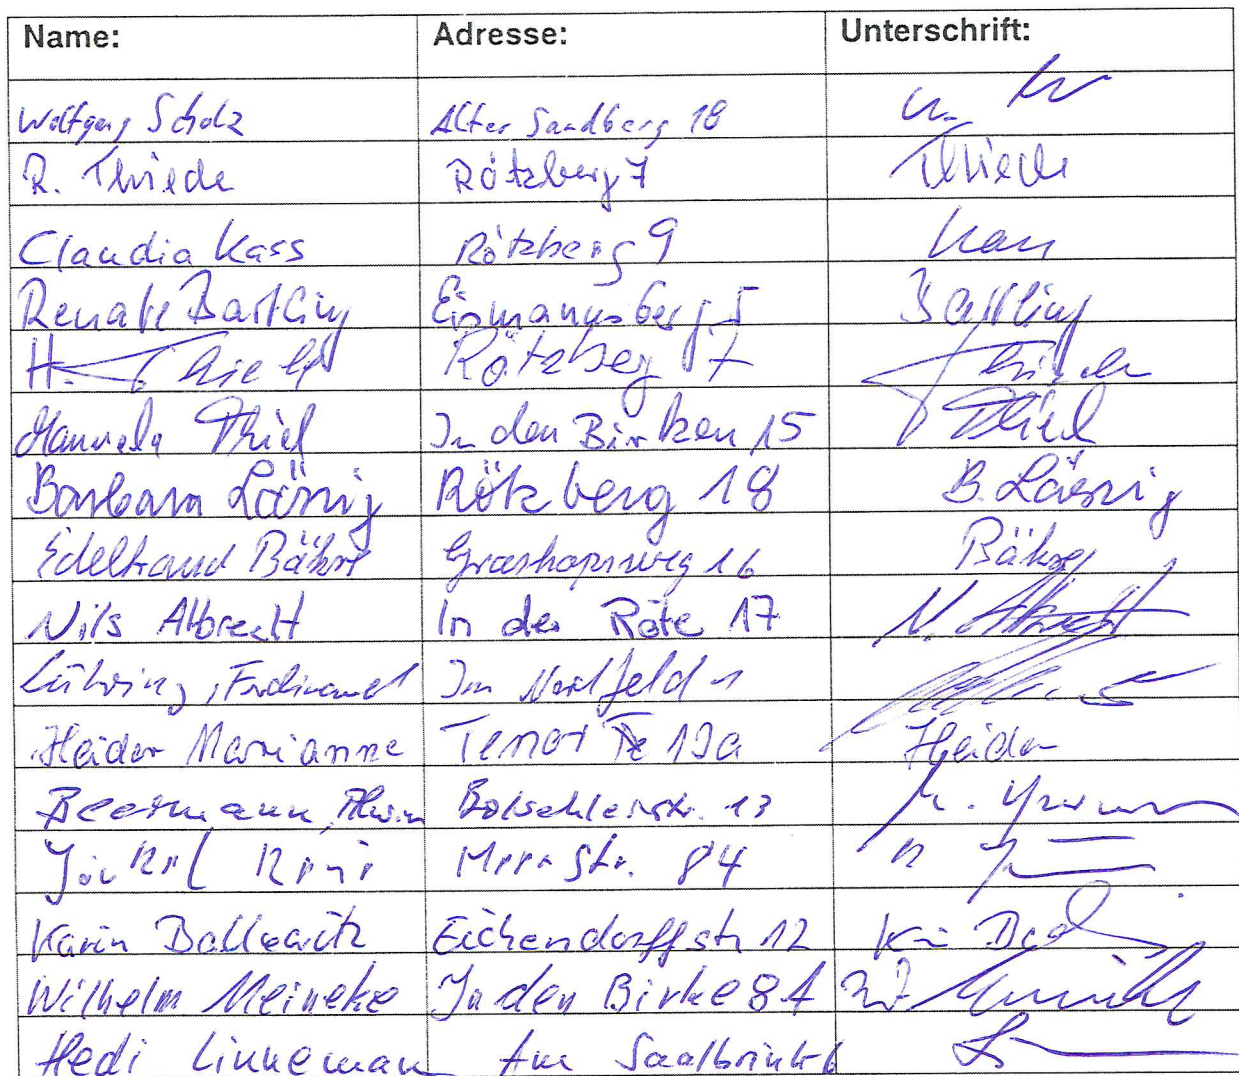 Name: Adresse: Unterschrift:
Wolfgang Scholz Alter Sandberg 18
R. Thiede Rötzberg 7 Thiede
Claudia Kass Rötzberg 9 Kass
Renate Bartling Eismannsberg 5 Bartling
H. Thiede Rötzberg 7 Thiede
Manuela Thiel In den Birken 15 Thiel
Barbara Lässig Rötzberg 18 B. Lässig
Edeltraud Bähre 16 Bähre
Nils Albrecht In der Röte 17 N. Albrecht
Lühring, Ferdinand Im 1
Heider Marianne Heider
Beermann, 13
Str. 84
Karin Ballwitz Eichendorffstr 12
Wilhelm Meineke In den Birke 8A
Hedi Linnemann Am Saalbrink 6